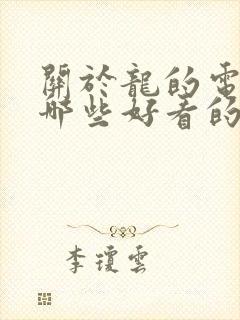 關於龍的電
哪些好看的
李瓊雲